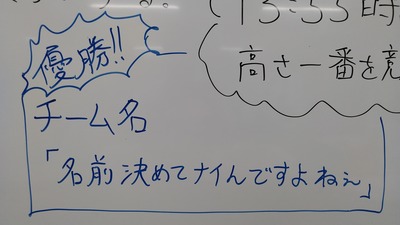 (13:55時
優勝!!
高さ一番を競
チーム名
「名前決めてナイんですよねぇ」